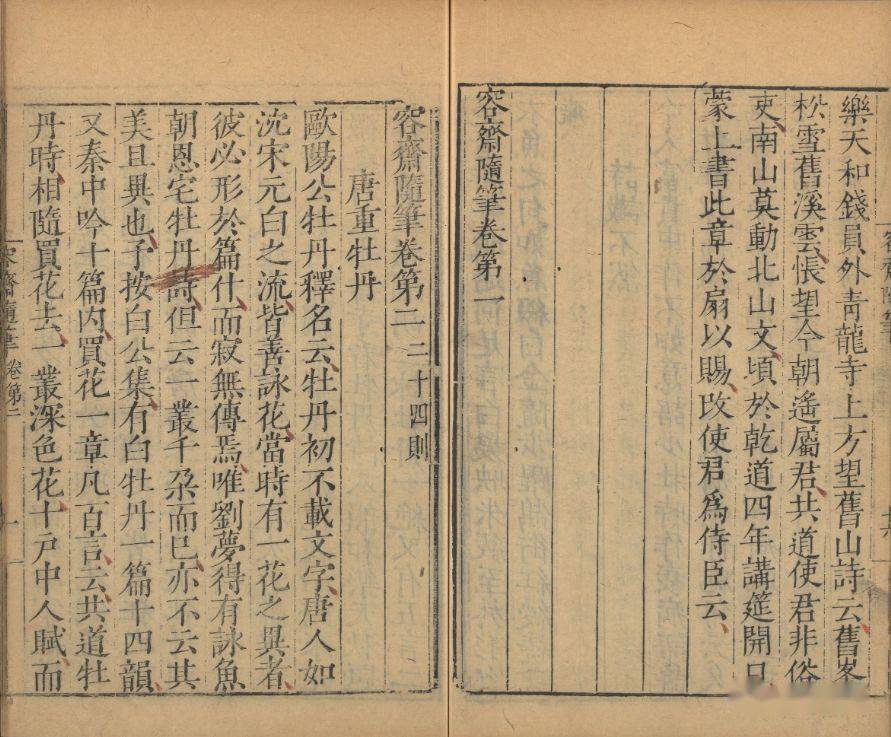 樂天和錢員外青龍寺上方望舊山詩云舊峯
松雪舊溪雲悵望今朝遙屬君共道使君非俗
吏南山莫動北山文頃於乾道四年講筵開日
蒙上書此章於扇以賜改使君爲侍臣云
容齋隨筆卷第一
容齋隨筆卷第二 二十四則
唐重牡丹
歐陽公牡丹釋名云牡丹初不載文字唐人如
沈宋元白之流皆善詠花當時有一花之異者
彼必形於篇什而寂無傳焉唯劉夢得有詠魚
朝恩宅牡丹詩但云一叢千朶而已亦不云其
美且異也予按白公集有白牡丹一篇十四韻
又秦中吟十篇內買花一章凡百言云共道牡
丹時相隨買花去一叢深色花十戶中人賦而
容齋隨筆 卷第二 一